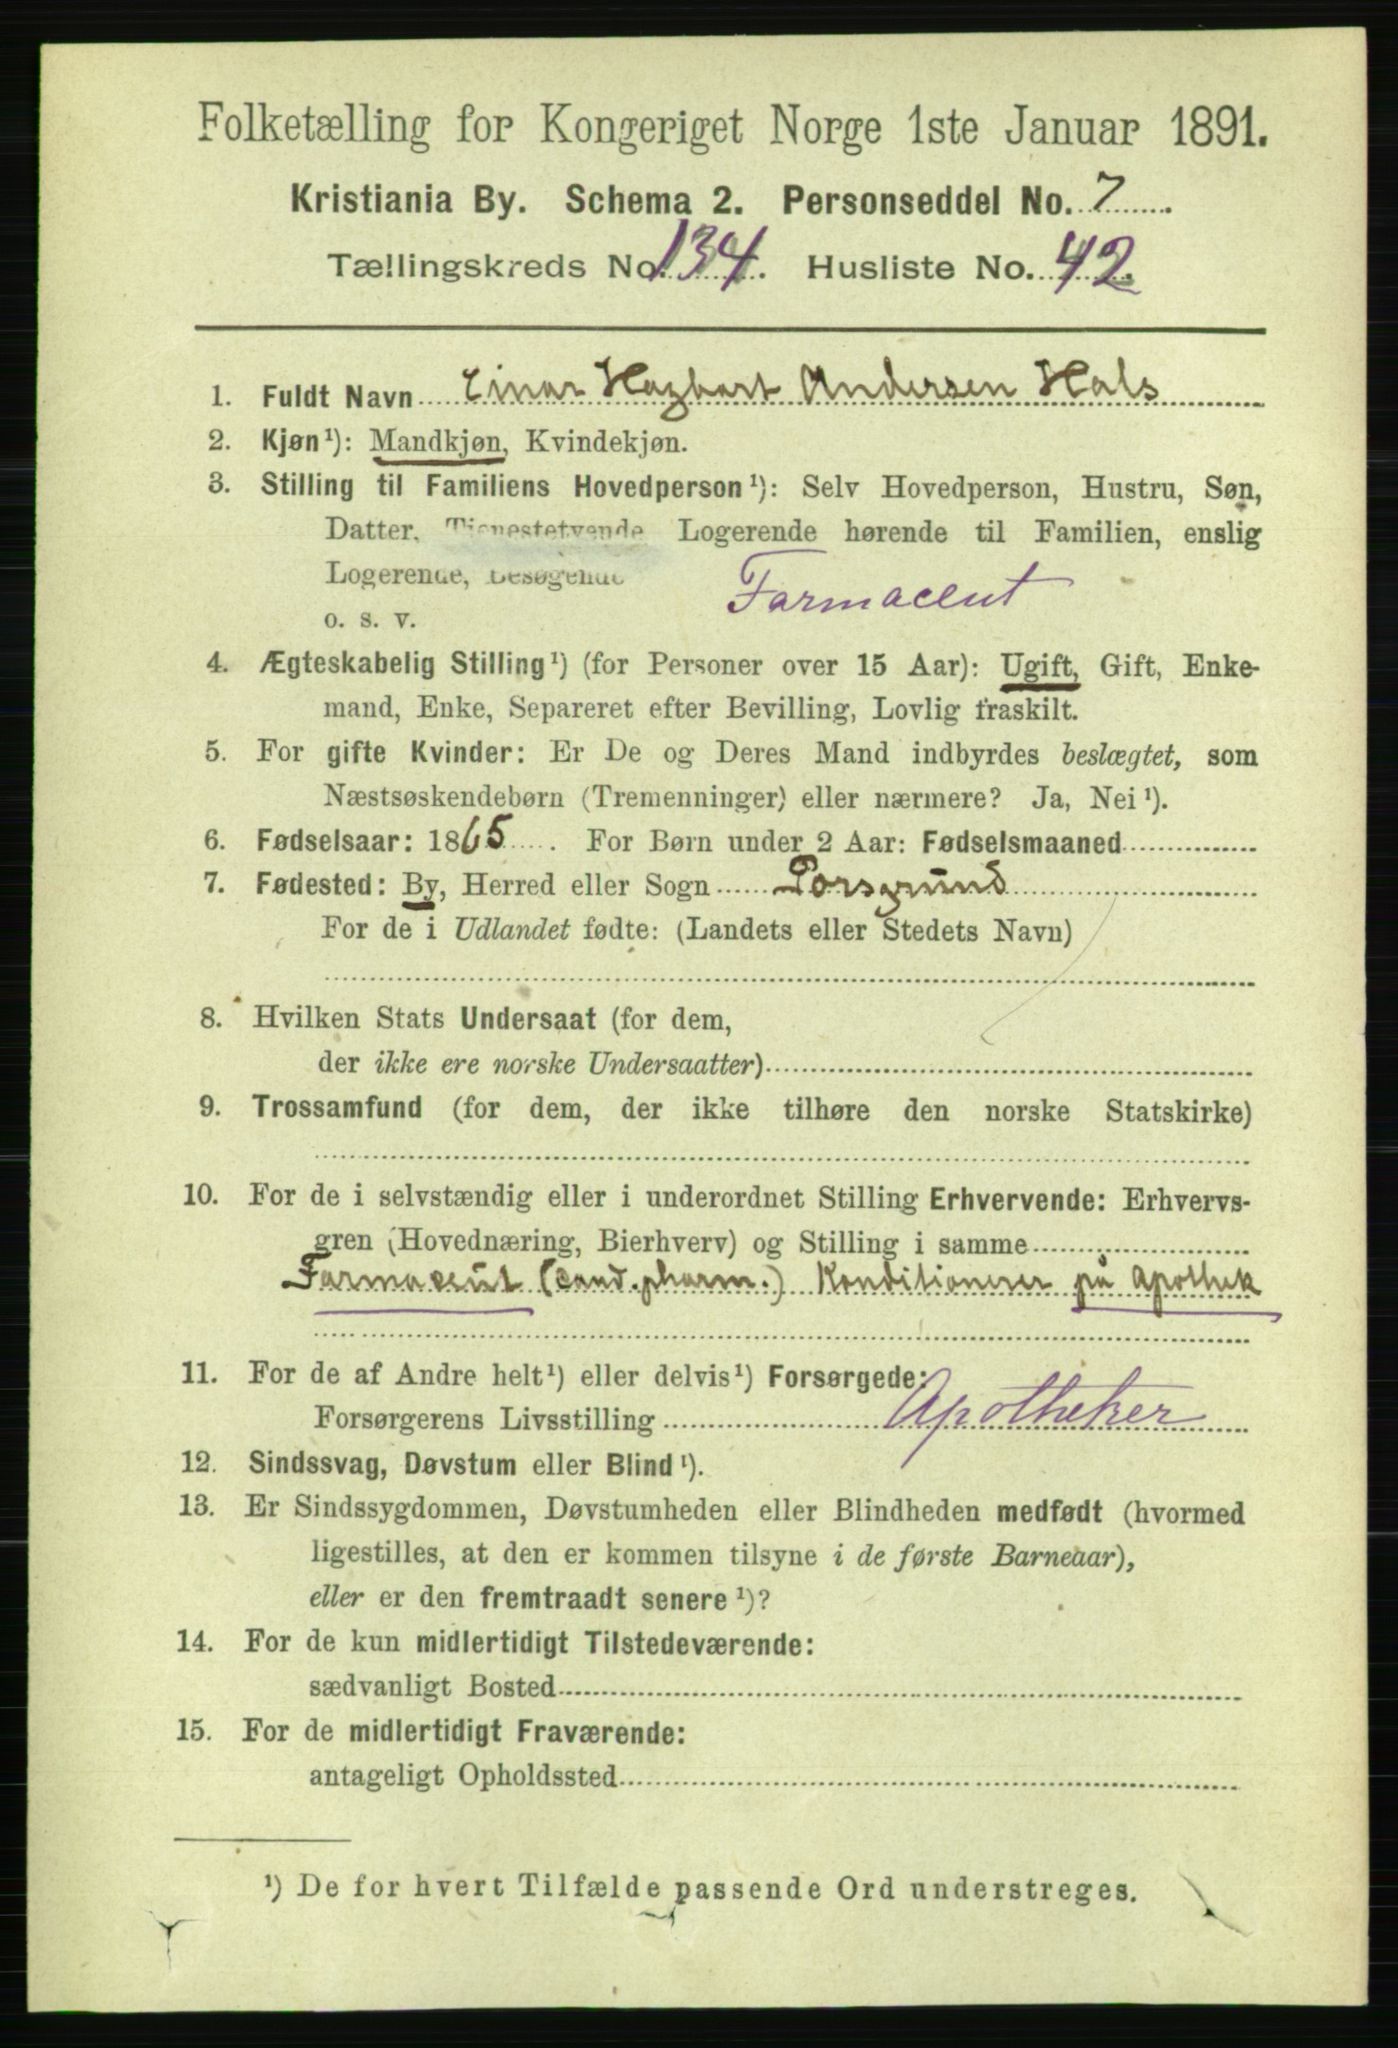 Folketælling for Kongeriget Norge 1ste Januar 1891.
Kristiania By. Schema 2. Personseddel No. 7
Tællingskreds No. 134. Husliste No. 42.
1. Fuldt Navn Einar Hagbart Andersen Hals
2. Kjøn¹): Mandkjøn, Kvindekjøn.
3. Stilling til Familiens Hovedperson¹): Selv Hovedperson, Hustru, Søn,
Datter, Tjenestetyende Logerende hørende til Familien, enslig
Logerende, Besøgende
Farmaceut
o. s. v.
4. Ægteskabelig Stilling¹) (for Personer over 15 Aar): Ugift, Gift, Enke-
mand, Enke, Separeret efter Bevilling, Lovlig fraskilt.
5. For gifte Kvinder: Er De og Deres Mand indbyrdes beslægtet, som
Næstsøskendebørn (Tremenninger) eller nærmere? Ja, Nei¹).
6. Fødselsaar: 1865. For Børn under 2 Aar: Fødselsmaaned
7. Fødested: By, Herred eller Sogn Porsgrund
For de i Udlandet fødte: (Landets eller Stedets Navn)
8. Hvilken Stats Undersaat (for dem,
der ikke ere norske Undersaatter)
9. Trossamfund (for dem, der ikke tilhøre den norske Statskirke)
10. For de i selvstændig eller i underordnet Stilling Erhvervende: Erhvervs-
gren (Hovednæring, Bierhverv) og Stilling i samme
Farmaceut (cand. pharm.) Konditionerer på Apothek
11. For de af Andre helt¹) eller delvis¹) Forsørgede:
Forsørgerens Livsstilling Apotheker
12. Sindssvag, Døvstum eller Blind¹).
13. Er Sindssygdommen, Døvstumheden eller Blindheden medfødt (hvormed
ligestilles, at den er kommen tilsyne i de første Barneaar),
eller er den fremtraadt senere¹)?
14. For de kun midlertidigt Tilstedeværende:
sædvanligt Bosted
15. For de midlertidigt Fraværende:
antageligt Opholdssted
¹) De for hvert Tilfælde passende Ord understreges.